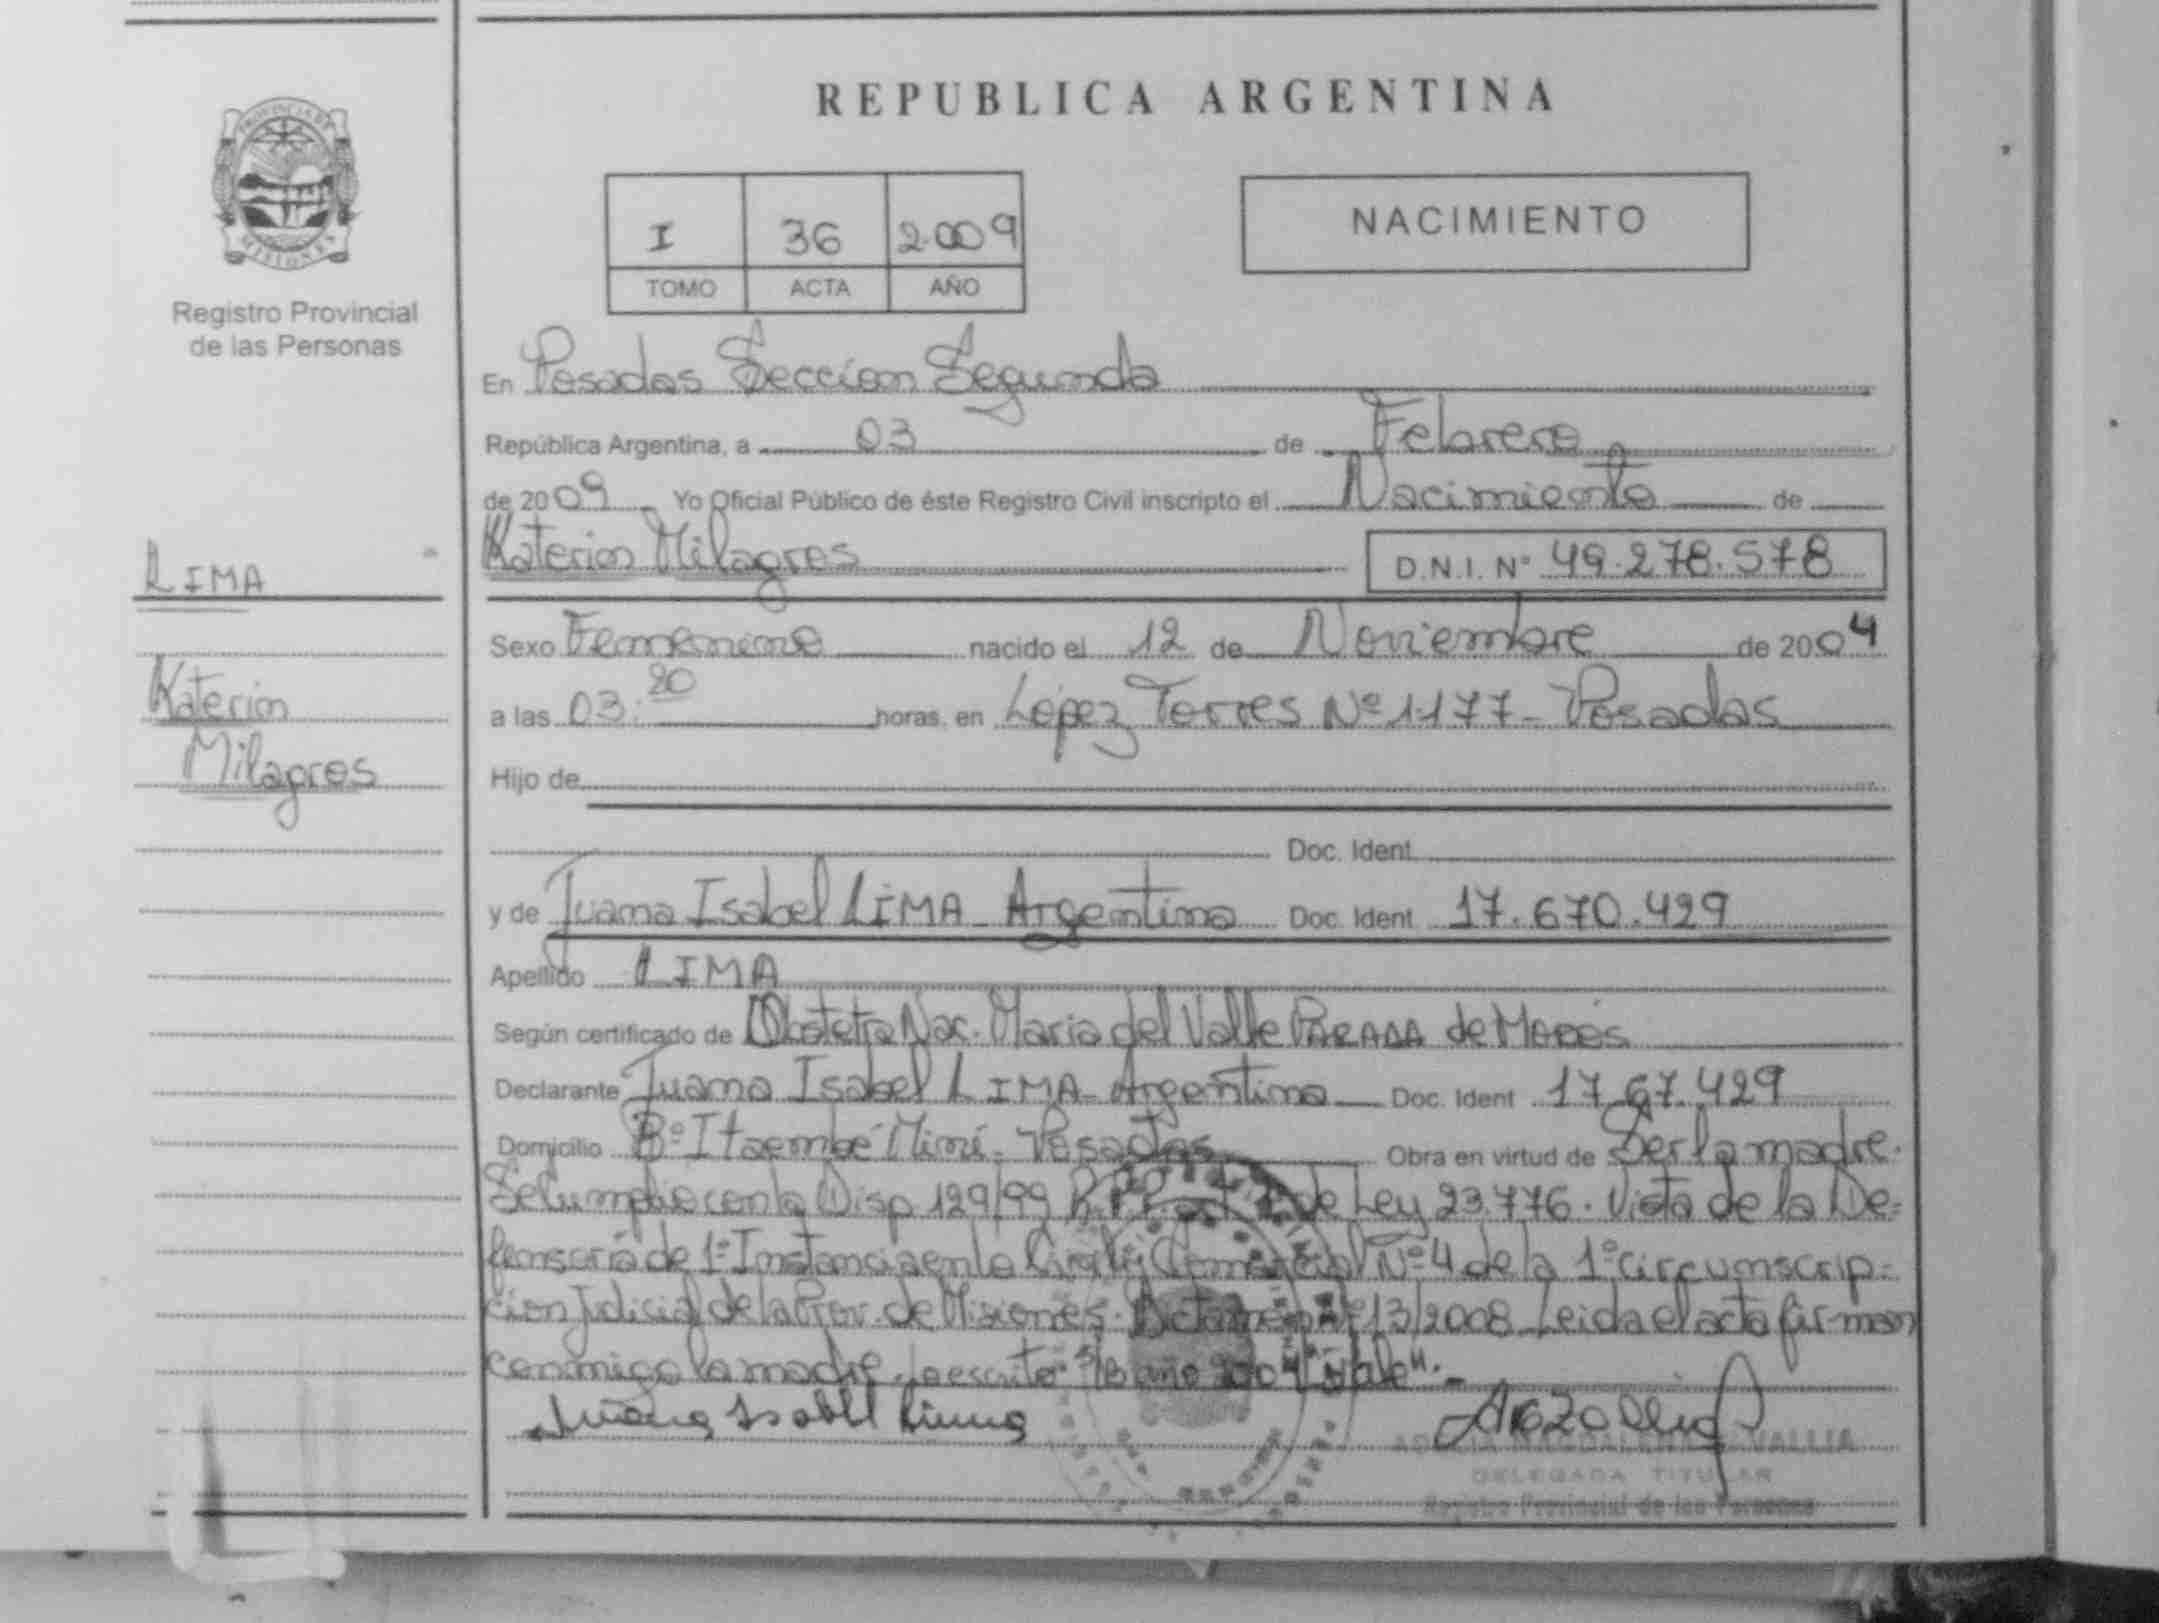 REPUBLICA ARGENTINA
PROVINCIA DE
MISIONES
Registro Provincial
de las Personas
I 36 2.009
TOMO ACTA AÑO
NACIMIENTO
En Posadas Seccion Segunda
República Argentina, a 03 de Febrero
de 2009 Yo Oficial Público de éste Registro Civil inscripto el Nacimiento de
Katerin Milagros D.N.I. Nº 49.278.578
LIMA
Katerin
Milagros
Sexo Femenino nacido el 12 de Noviembre de 2004
a las 03:20 horas, en López Torres Nº 1177 - Posadas
Hijo de
Doc. Ident
y de Juana Isabel LIMA - Argentina Doc. Ident 17.670.429
Apellido LIMA
Según certificado de Obstetra Nac. Maria del Valle PARADA de
Declarante Juana Isabel LIMA - Argentina Doc. Ident 17.67.429
Domicilio Bº Itaembé Miní - Posadas Obra en virtud de Ser la madre.
Se cumplio con la Disp 129/99 R.P.P. de Ley 23.776. Vista de la De=
fensoría de 1º Instancia en lo Civil y Comercial Nº 4 de la 1º circunscrip=
cion Judicial de la Prov. de Misiones. Dictamen Nº 13/2008 Leida el acta firman
conmigo la madre. Lo escrito s/b año 2004 "Vale". -
Juana Isabel Lima
DELEGADA TITULAR
Registro Provincial de las Personas